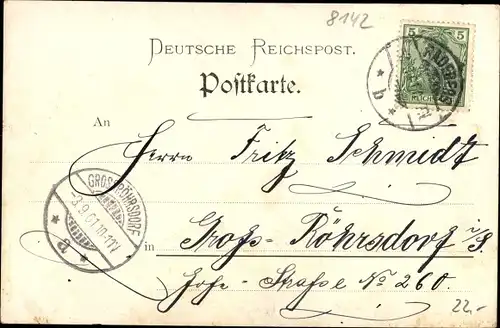 8142
5
DEUTSCHE REICHSPOST.
Postkarte.
b
An
Herrn Fritz Schmidt
GROSSRÖHRSDORF
3.9.01.10-11V
a
in Groß-Röhrsdorf i/S.
Hofe-Straße No 260.
22.-